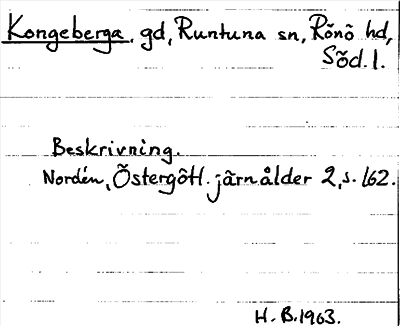 Kongeberga, gd, Runtuna sn, Rönö hd,
Söd. l.
Beskrivning.
Nordén, Östergötl. järnålder 2, s. 162.
H. B. 1963.